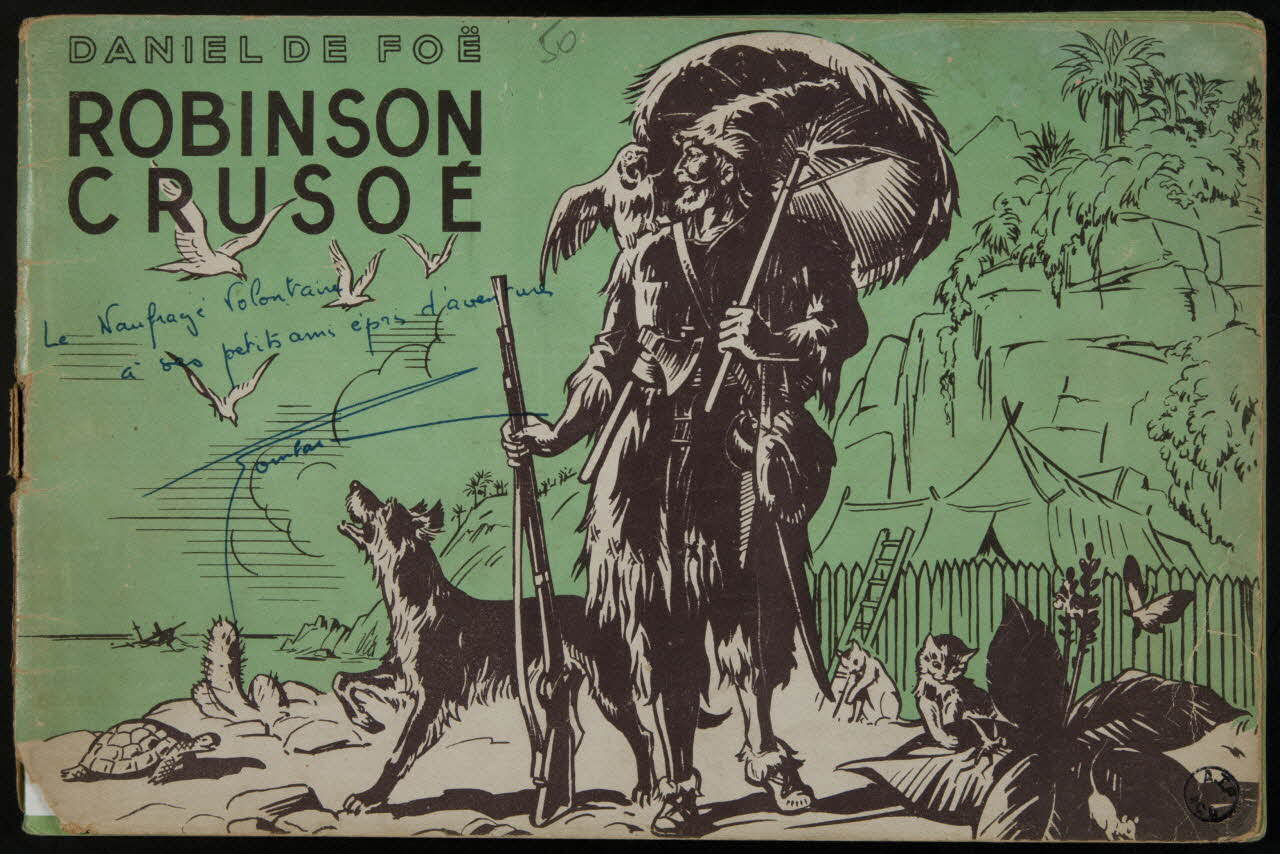 DANIEL DE FOË
50
ROBINSON
CRUSOÉ
Le Naufragé Volontaire
à ses petits amis épris d'aventures